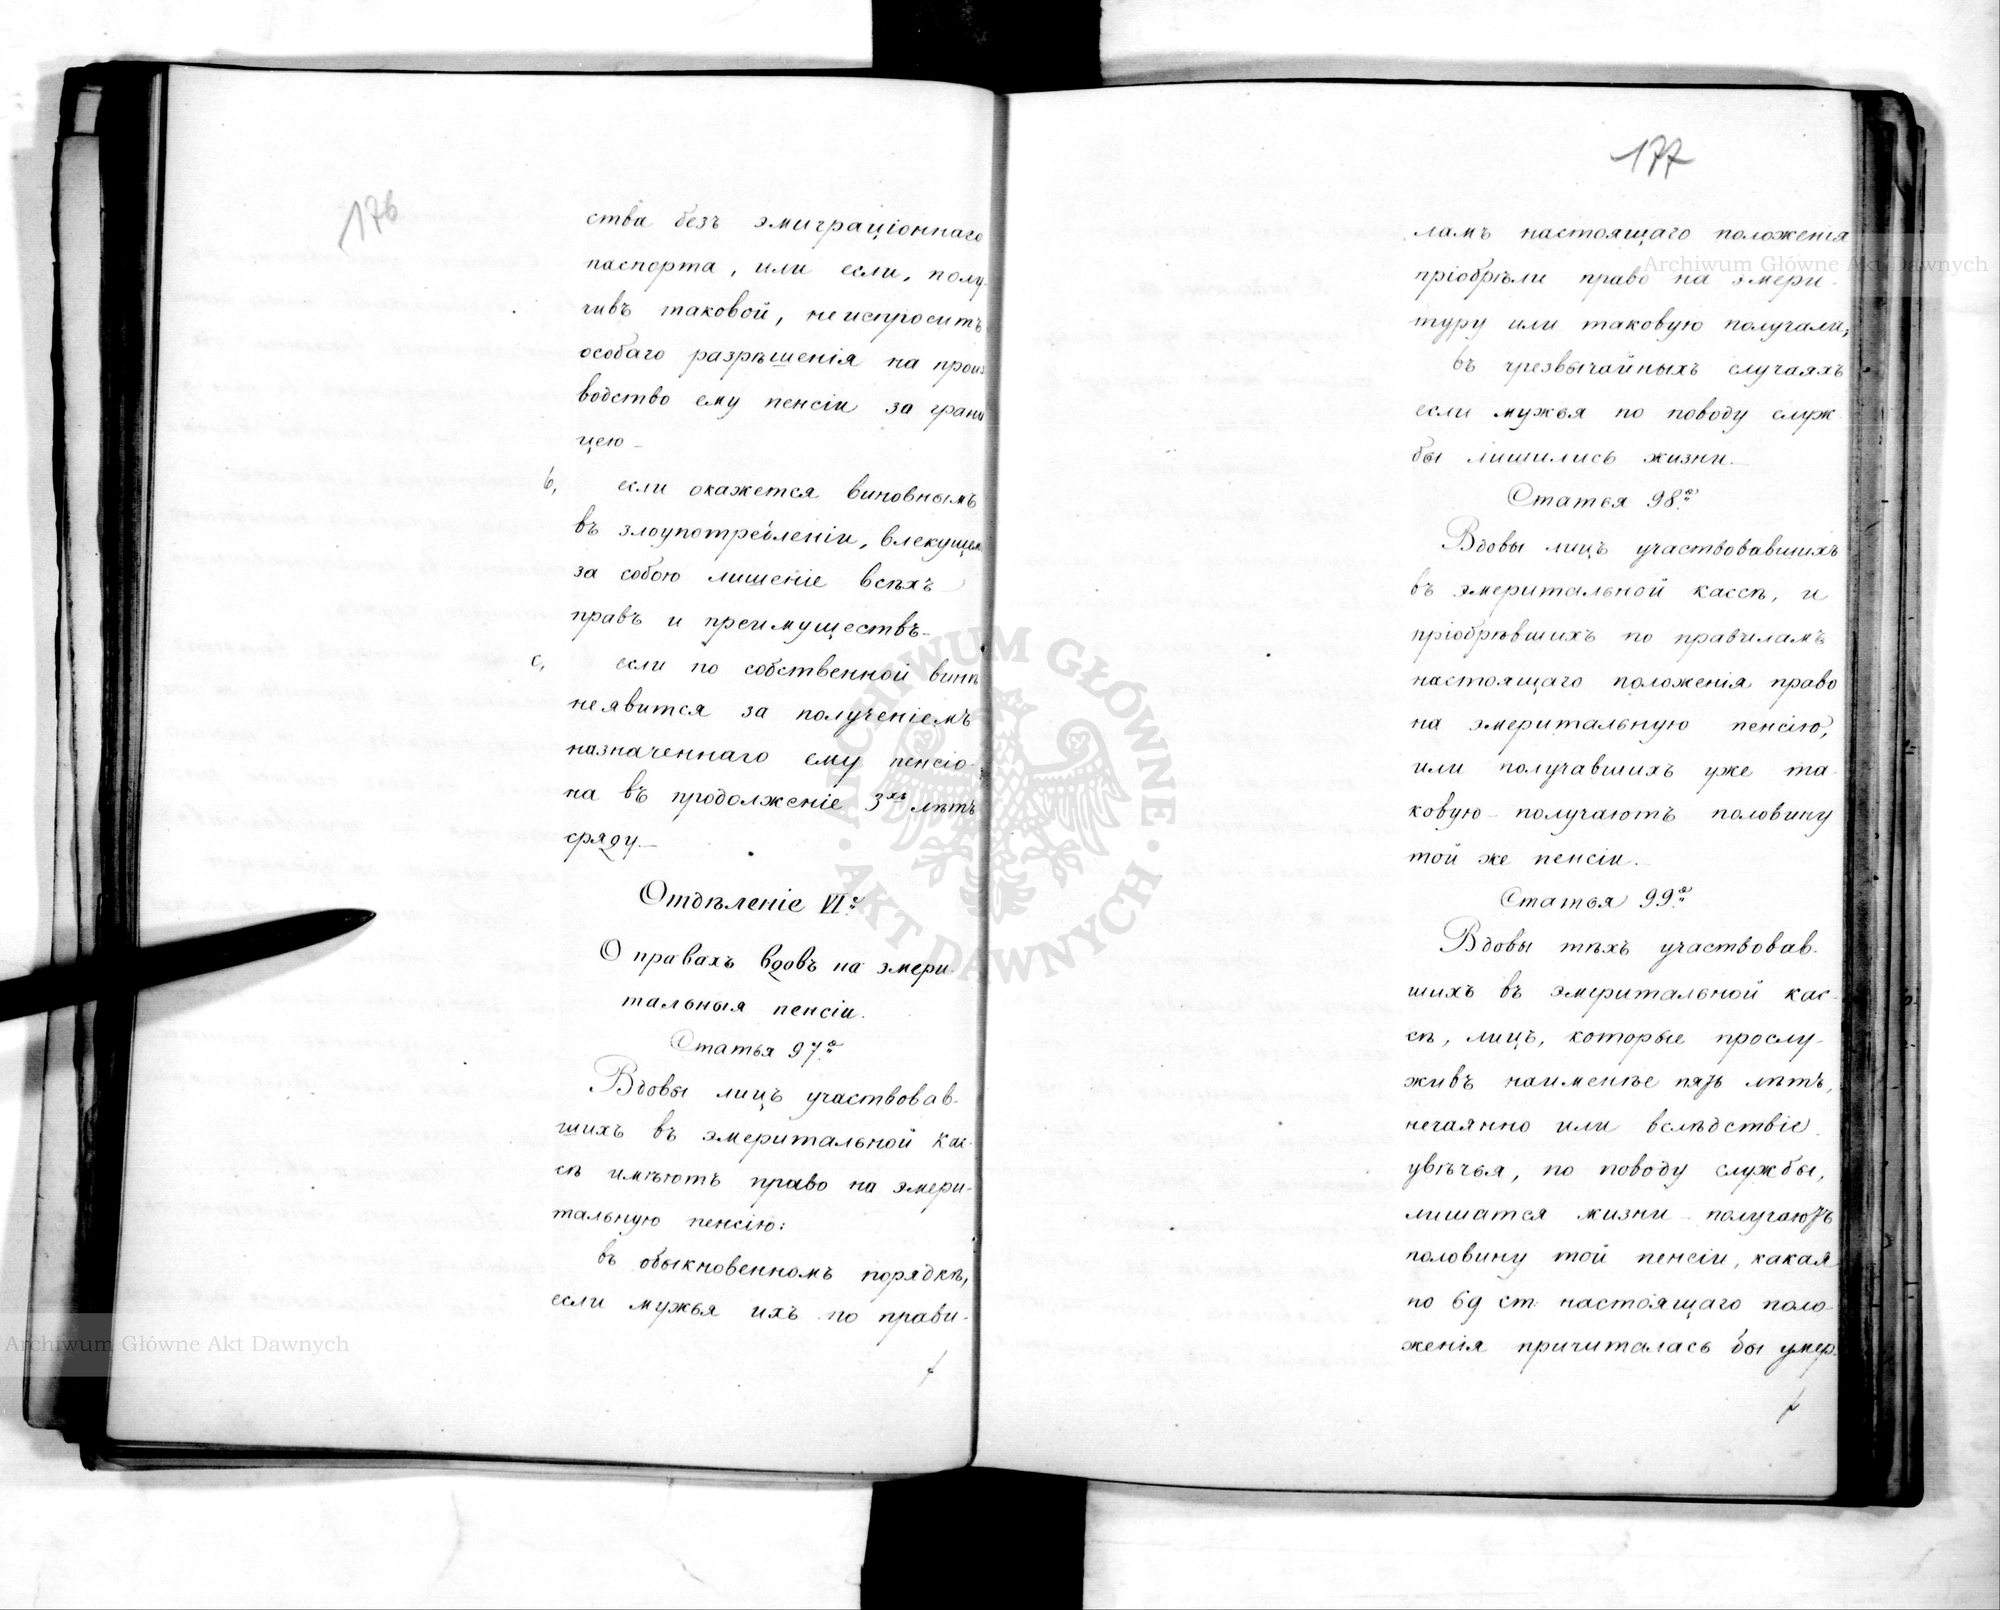 176
ства безъ эмиграціоннаго
паспорта, или если, полу-
чивъ таковой, неиспроситъ
особаго разрѣшенія на произ
водство ему пенсіи за грани
цею
b, если окажется виновнымъ
въ злоупотребленіи, влекущем
за собою лишеніе всѣхъ
правъ и преимуществъ
c, если по собственной винѣ
неявится за полученіемъ
назначеннаго ему пенсіо-
на въ продолженіе 3хъ лѣтъ
сряду
Отдѣленіе VIе
О правахъ вдовъ на эмери-
тальныя пенсіи.
Статья 97я
Вдовы лицъ участвовав-
шихъ въ эмеритальной кас-
сѣ имѣютъ право на эмери-
тальную пенсію:
въ обыкновенномъ порядкѣ,
если мужья ихъ по прави-
177
ламъ настоящаго положенія
пріобрѣли право на эмери-
туру или таковую получали;
въ чрезвычайныхъ случаяхъ
если мужья по поводу служ-
бы лишились жизни.
Статья 98я
Вдовы лицъ участвовавшихъ
въ эмеритальной кассѣ, и
пріобрѣвшихъ по правиламъ
настоящаго положенія право
на эмеритальную пенсію,
или получавшихъ уже та-
ковую получаютъ половину
той же пенсіи.
Статья 99я
Вдовы тѣхъ участвовав-
шихъ въ эмеритальной кас-
сѣ, лицъ, которые прослу-
живъ наименѣе пять лѣтъ,
нечаянно или вслѣдствіе
увѣчья, по поводу службы,
лишатся жизни получаютъ
половину той пенсіи, какая
по 69 ст. настоящаго поло-
женія причиталась бы умер-
Archiwum Główne Akt Dawnych
Archiwum Główne Akt Dawnych
ARCHIWUM GŁÓWNE · AKT DAWNYCH ·